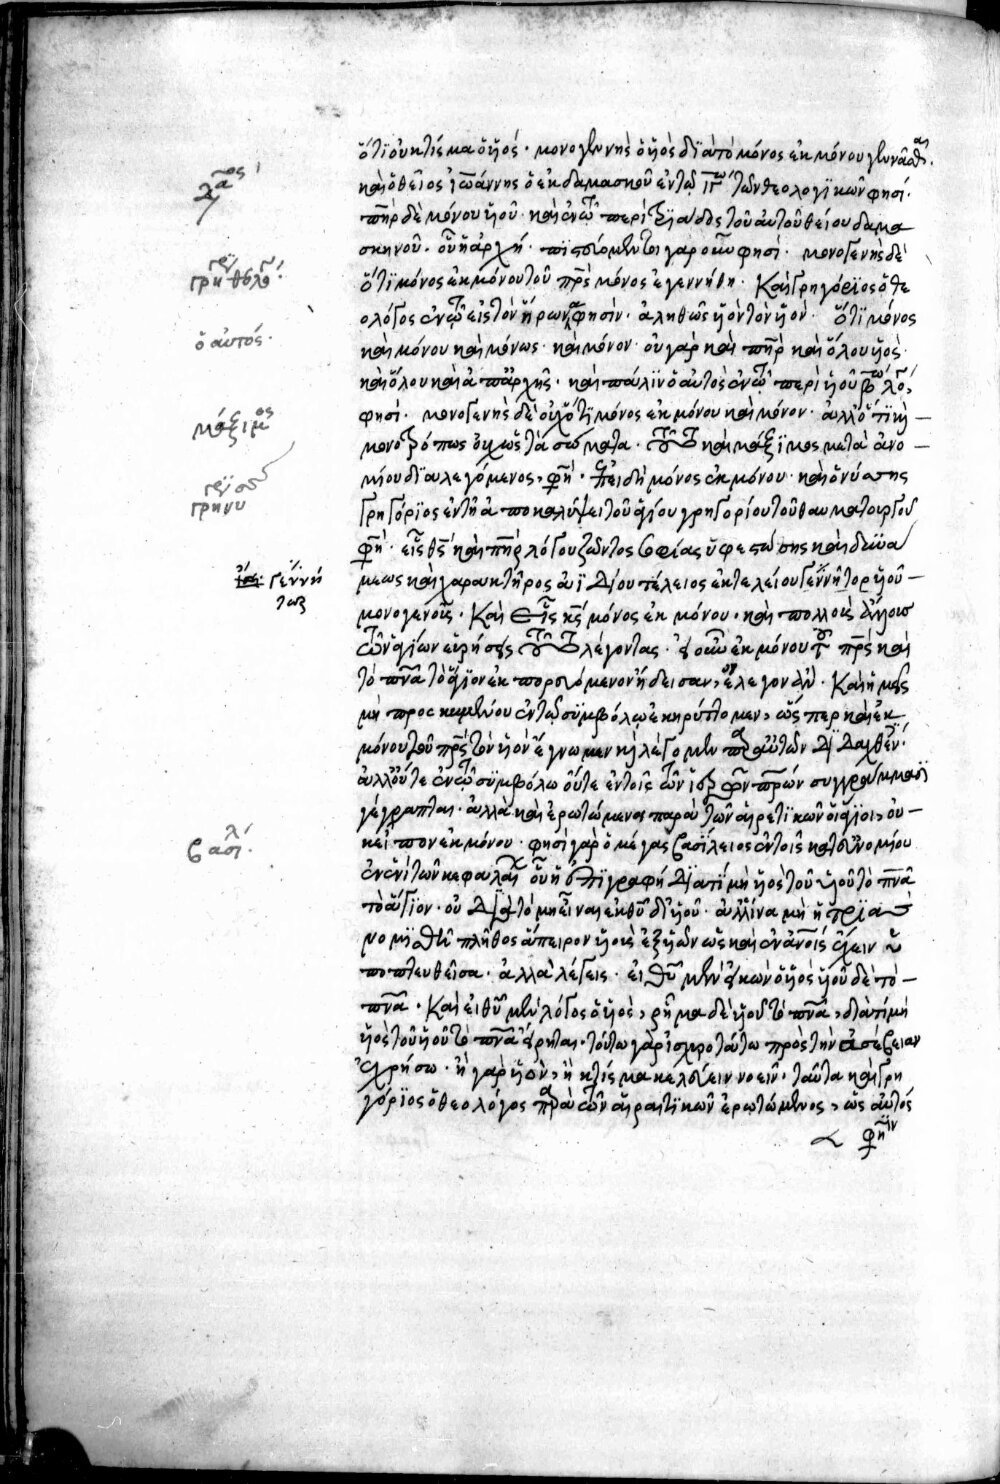 ὅτι οὐ κτίσμα ὁ υἱός· μονογενὴς ὁ υἱὸς διὰ τὸ μόνος ἐκ μόνου γεννᾶσθαι.
καὶ ὁ θεῖος ἰωάννης ὁ ἐκ δαμασκοῦ ἐν τῷ τῶν θεολογικῶν φησί·
πηρ δὲ μόνου υἱοῦ· καὶ ἐν τῷ περὶ τοῦ αὐτοῦ θείου δαμα
σκηνοῦ· οὗ ἡ ἀρχή· φησί· μονογενὴς δὲ
ὅτι μόνος ἐκ μόνου τοῦ πρς μόνος ἐγεννήθη· Καὶ γρηγόριος ὁ θε
ολόγος ἐν τῷ εἰς τὸν ἥρωνα φησὶν· ἀληθῶς υἱὸν τὸν υἱόν· ὅτι μόνος
καὶ μόνου καὶ μόνως· καὶ μόνον· οὐ γὰρ καὶ πηρ καὶ ὅλου υἱὸς·
καὶ ὅλου καὶ ἀπαρχῆς· καὶ πάλιν ὁ αὐτὸς ἐν τῷ περὶ υἱοῦ β λό,
φησί· μονογενὴς δὲ οὐχ ὅτι μόνος ἐκ μόνου καὶ μόνον· ἀλλ ὅτι καὶ
μονοτρόπως οὐχ ὡς τὰ σώματα· καὶ μάξιμος μετὰ ἀνο
μίου διαλεγόμενος, φη· ἐπειδὴ μόνος ἐκ μόνου· καὶ ὁ νύσσης
γρηγόριος ἐν τῇ ἀποκαλύψει τοῦ ἁγίου γρηγορίου τοῦ θαυματουργοῦ
φη· εἷς θς καὶ πηρ λόγου ζῶντος σοφίας ὑφεστώσης καὶ δυνά
μεως καὶ χαρακτῆρος ἀϊδίου τέλειος ἐκ τελείου γεννήτωρ υἱοῦ
μονογενοῦς· Καὶ εἷς κς μόνος ἐκ μόνου· καὶ πολλοὺς ἄλλους
τῶν ἁγίων εὑρήσεις λέγοντας· ἐκ μόνου τοῦ πρς καὶ
τὸ πνα τὸ ἅγιον ἐκπορευόμενον ᾔδεισαν, ἔλεγον ἂν· Καὶ ἡμεῖς
μὴ προσκειμένου ἐν τῷ συμβόλῳ ἐκηρύττομεν, ὥσπερ καὶ ἐκ
μόνου τοῦ πρς τὸν υἱὸν ἔγνωμεν καὶ λέγομεν παρ αὐτῶν διδαχθέν
ἀλλ οὔτε ἐν τῷ συμβόλω οὔτε ἐν τοῖς τῶν πρων συγγράμμασι
γέγραπται· ἀλλὰ καὶ ἐρωτώμενοι παρὰ τῶν αἱρετικῶν οἱ ἅγιοι, οὐ
κ εἶπον ἐκ μόνου· φησὶ γὰρ ὁ μέγας βασίλειος ἐν τοῖς κατ εὐνομίου
ἐν ἑνὶ τῶν κεφαλαίων οὗ ἡ ἐπιγραφή διατί μὴ υἱὸς τοῦ υἱοῦ τὸ πνα
τὸ ἅγιον· οὐ διὰ τὸ μὴ εἶναι ἐκ θυ δι υἱοῦ· ἀλλ ἵνα μὴ ἡ τριὰς
νομισθῇ πλῆθος ἄπειρον υἱοὺς ἐξ υἱῶν ὡς καὶ ἐν ἀνοις ἔχειν ὑ
ποπτευθεῖσα· ἀλλὰ λέγεις· εἰ θυ μὲν εἰκὼν ὁ υἱὸς υἱοῦ δὲ τὸ
πνα· Καὶ εἰ θυ μὲν λόγος ὁ υἱὸς, ῥῆμα δὲ υἱοῦ τὸ πνα, διατί μὴ
υἱὸς τοῦ υἱοῦ τὸ πνα εἴρηται· τούτω γὰρ ἰσχυροτάτω πρὸς τὴν ἀσέβειαν
ἐχρήσω· ἢ γὰρ υἱὸν, ἢ κτίσμα κελεύειν νοεῖν· ταῦτα καὶ γρη
γόριος ὁ θεολόγος παρὰ τῶν αἱρετικῶν ἐρωτώμενος, ὡς αὐτός
φησιν
ὁ αὐτός·
μάξιμος
γρη νυ
γεννή
τωρ
βασι λ